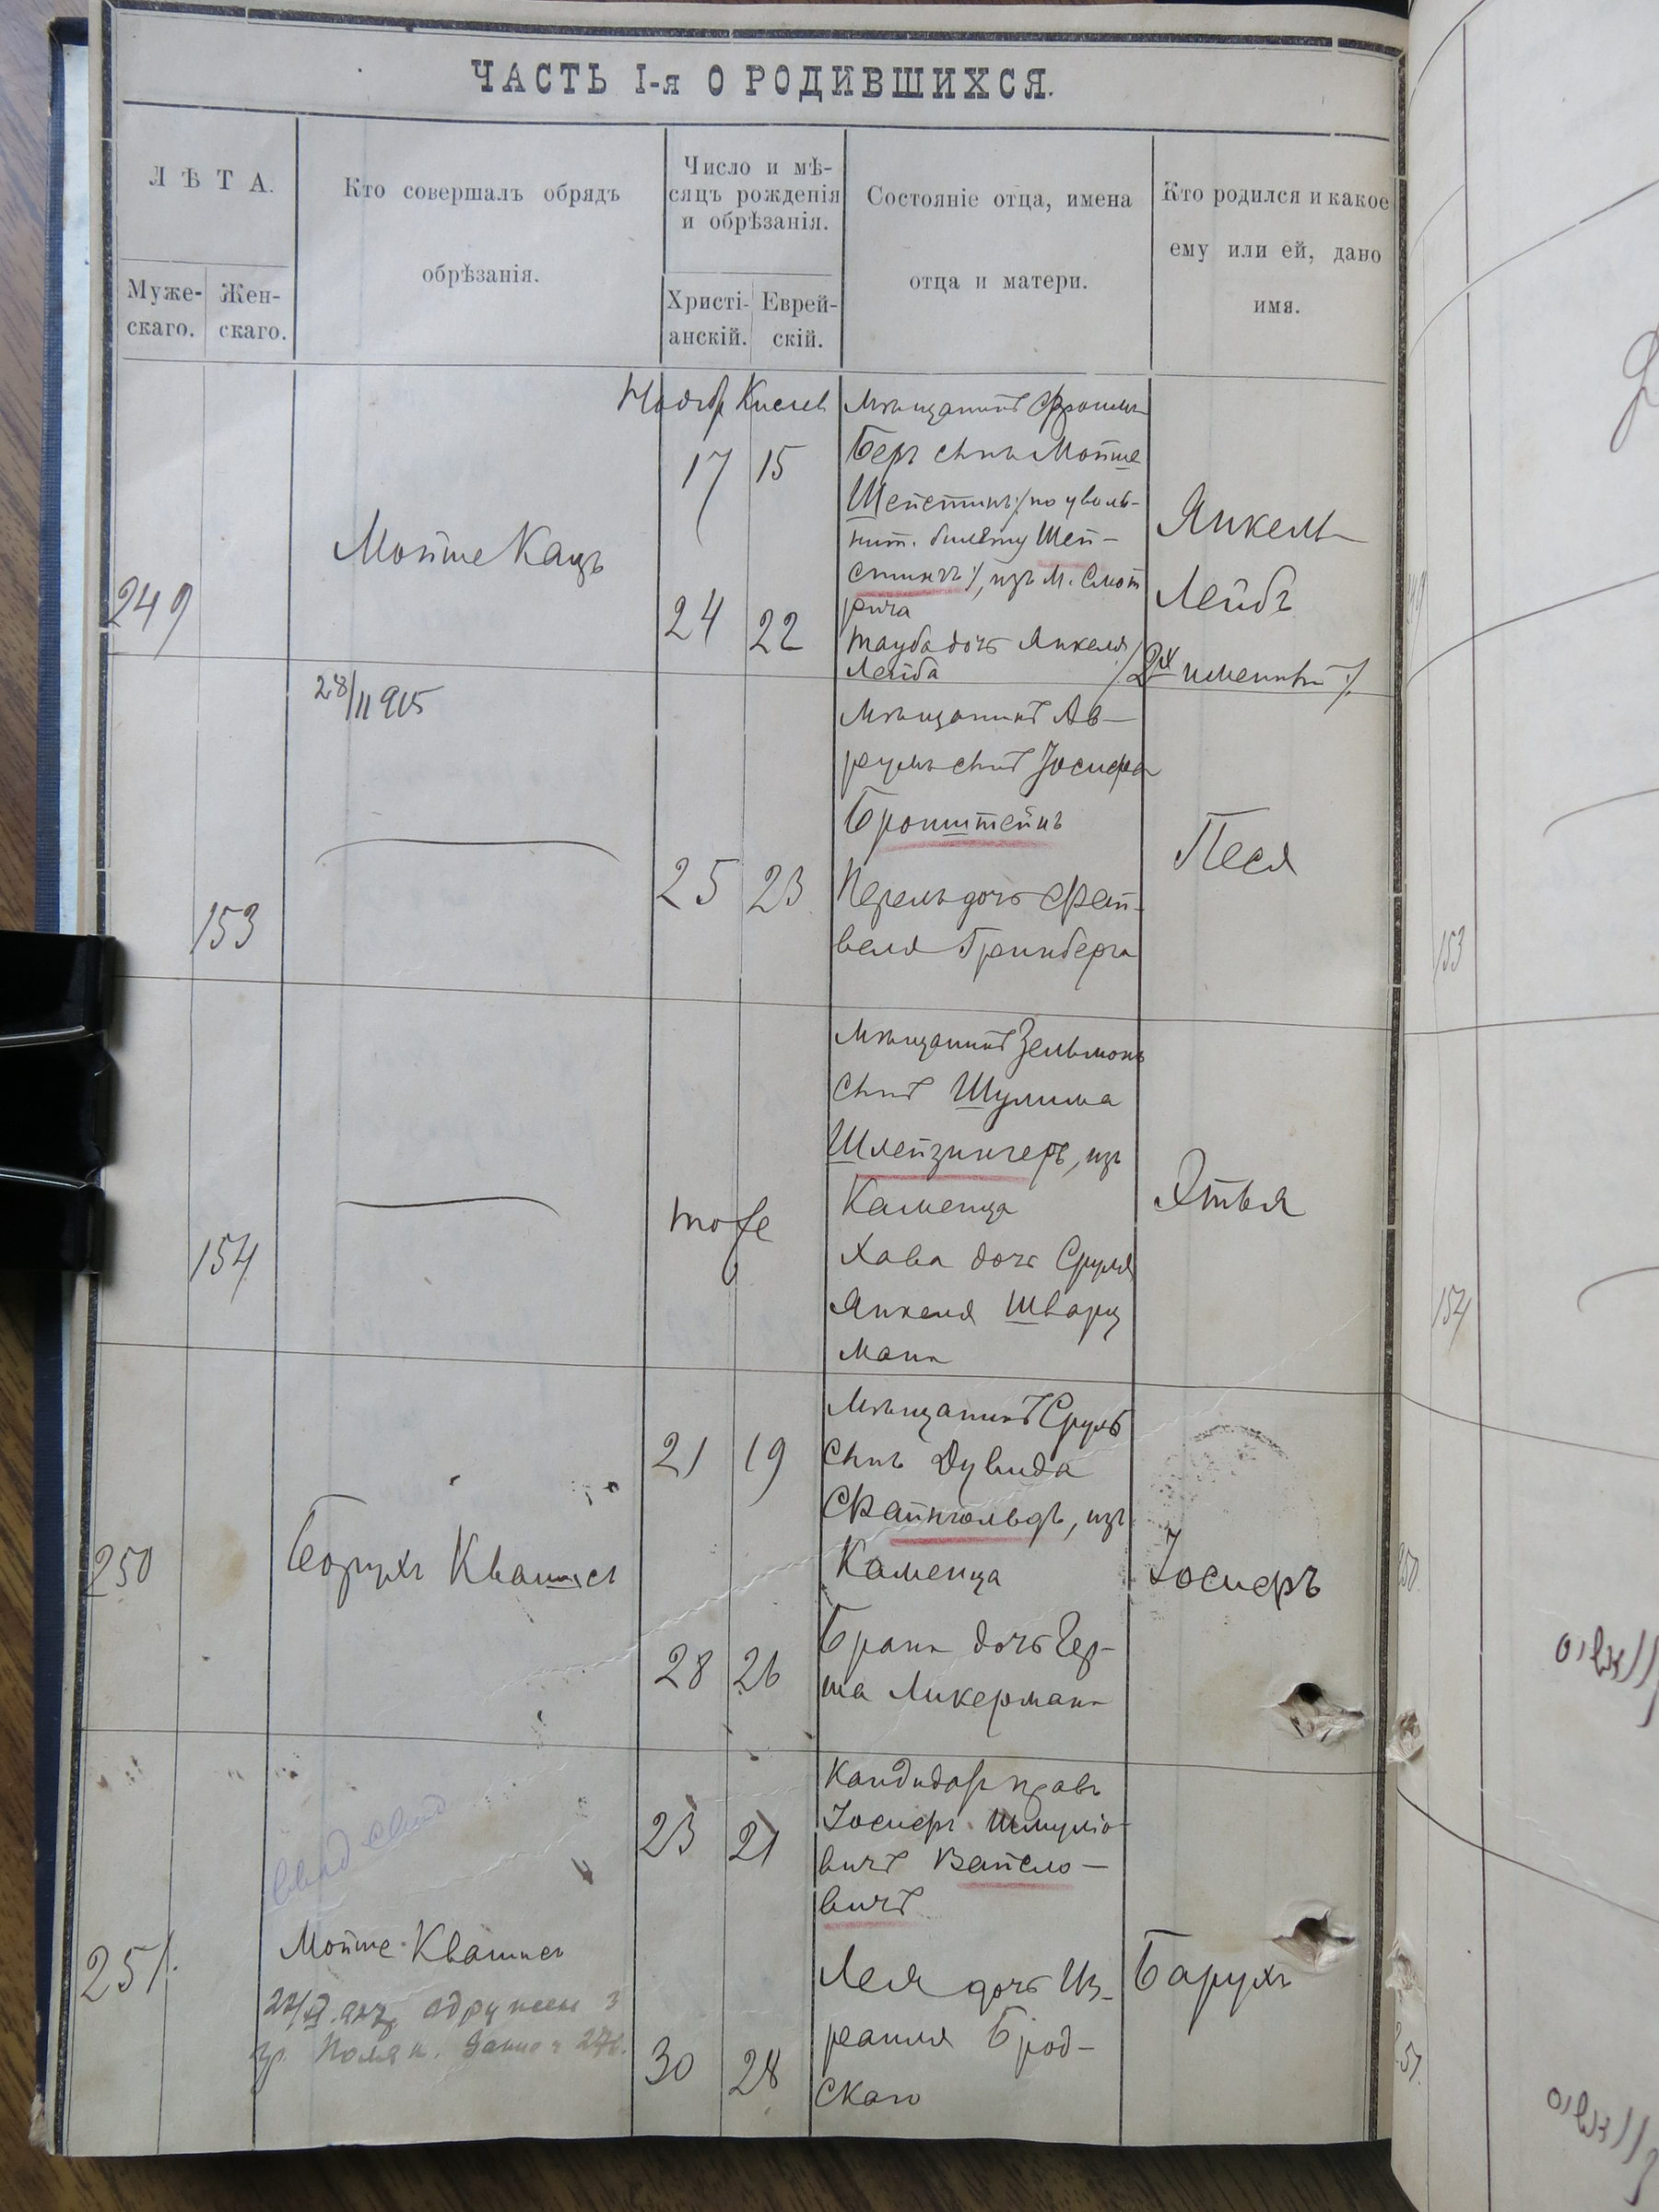 ЧАСТЬ I-я О РОДИВШИХСЯ.
ЛѢТА.
Муже-
скаго.
Жен-
скаго.
Кто совершалъ обрядъ
обрѣзанія.
Число и мѣ-
сяцъ рожденія
и обрѣзанія.
Христі-
анскій.
Еврей-
скій.
Состояніе отца, имена
отца и матери.
Кто родился и какое
ему или ей, дано
имя.
249
Мойше Кацъ
Ноябр Кислев
17 15
24 22
Мѣщанинъ Фроимъ
Беръ сынъ Мойше
Шепстинъ /: по уволь-
нит. билету Шеп-
стинъ :/, изъ м. Смот
рича
Тауба дочь Янкеля
Лейба
Янкель
Лейбъ
/: 2х именный :/
28/11 915
153
25 23
Мѣщанинъ Ав-
румъ сынъ Іосифа
Бронштейнъ
Перель дочь Фай-
веля Гринберга
Песя
154
тоже
Мѣщанинъ Зельманъ
сынъ Шулима
Шлейзингеръ, изъ
Каменца
Хава дочь Сруля
Янкеля Шварц
мана
Этья
250
Борухъ Квашнеъ
21 19
28 26
Мѣщанинъ Сруль
сынъ Дувида
Файнгольдъ, изъ
Каменца
Брана дочь Гер-
ша Ликермана
Іосифъ
251.
Мойше Квашнеъ
одружен з
гр. Поляк.
23 21
30 28
Кандидатъ правъ
Іосифъ Шмуліо-
вичъ Вайсло-
вичъ
Лея дочь Из-
раиля Брод-
скаго
Барухъ
153
154
250
251.